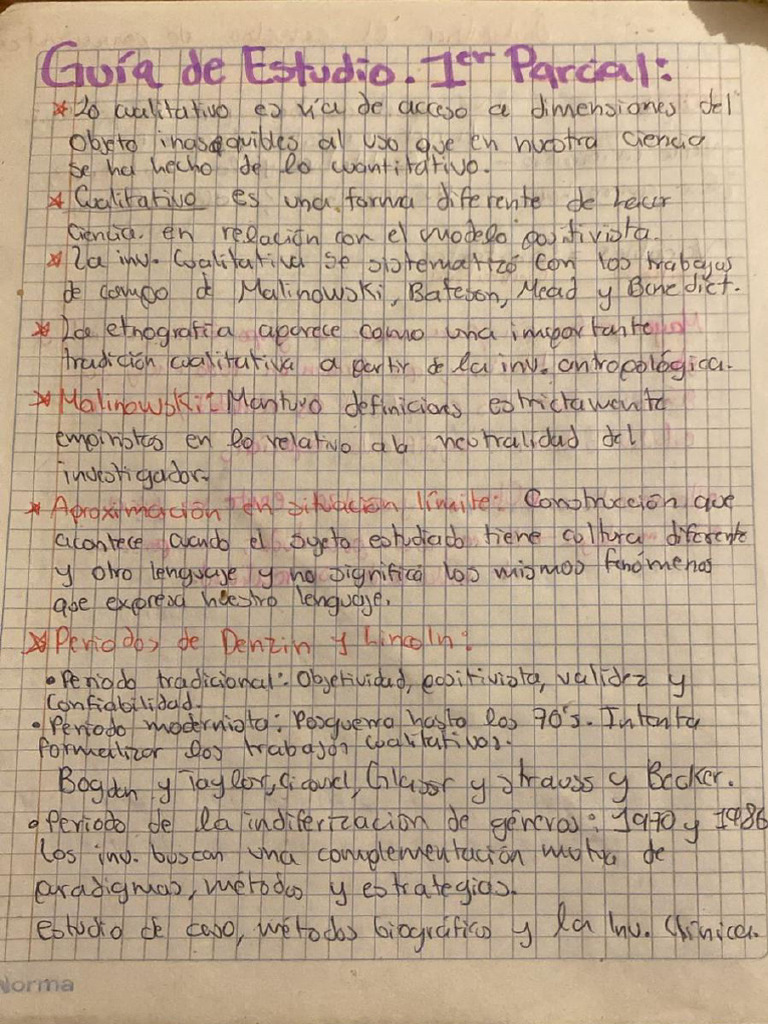 Guía de Estudio. 1er Parcial:
* Lo cualitativo es vía de acceso a dimensiones del
objeto inasequibles al uso que en nuestra ciencia
se ha hecho de lo cuantitativo.
* Cualitativo es una forma diferente de hacer
ciencia. en relación con el modelo positivista.
* La inv. Cualitativa se sistematizó con los trabajos
de campo de Malinowski, Bateson, Mead y Benedict.
* La etnografía aparece como una importante
tradición cualitativa a partir de la inv. antropológica.
* Malinowski: Mantuvo definiciones estrictamente
empiristas en lo relativo a la neutralidad del
investigador.
* Aproximación en situación límite: Construcción que
acontece cuando el sujeto estudiado tiene cultura diferente
y otro lenguaje y no significa los mismos fenómenos
que expresa nuestro lenguaje.
* Periodos de Denzin y Lincoln:
• Periodo tradicional: Objetividad, positivista, validez y
confiabilidad.
• Periodo modernista: Posguerra hasta los 70's. Intenta
formalizar los trabajos cualitativos.
Bogdan y Taylor, Cicourel, Glaser y Strauss y Becker.
• Periodo de la indiferizacion de géneros: 1970 y 1986
los inv. buscan una complementación mutua de
paradigmas, métodos y estrategias.
estudio de caso, métodos biográfico y la Inv. Clínica.
Norma